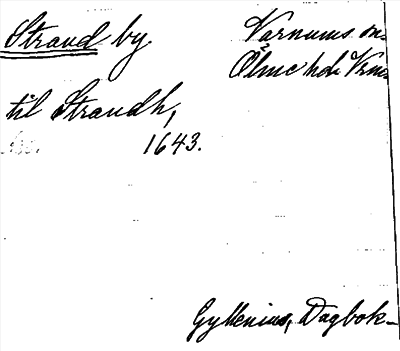 Strand by
Varnums
Ölme hd
til Strandh,
1643.
Gyllenius, Dagbok